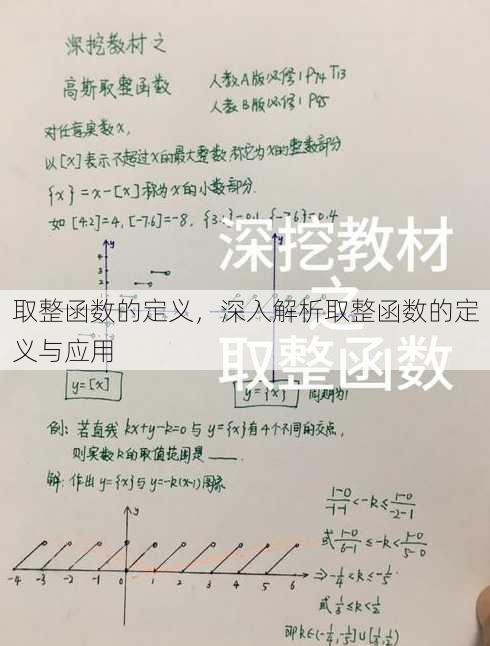 深挖教材之
高斯取整函数 人教A版必修1 P74 T13
人教B版必修1 P85
对任意实数x,
以[x]表示不超过x的最大整数 称它为x的整数部分
{x}=x-[x]称为x的小数部分.
如 [4.2]=4, [-7.6]=-8,
深挖教材
之
取整函数
取整函数的定义，深入解析取整函数的定
义与应用
y=[x]
y={x} 周期为1
例: 若直线 kx+y-k=0 与 y={x}有4个不同的交点,
则实数k的取值范围是
解: 作出 y={x}与 y=-k(x-1)图象
-4 -3 -2 -1 0 1 2 3 4 5 6 x
y
(1-0)/(-1-1) < -k ≤ (1-0)/(-2-1)
或 (1-0)/(6-1) ≤ -k < (1-0)/(5-0)
⇒ -1/4 < k ≤ -1/5
或 1/3 ≤ k < 1/2
即 k∈(-1/4, -1/5]∪[1/3, 1/2)